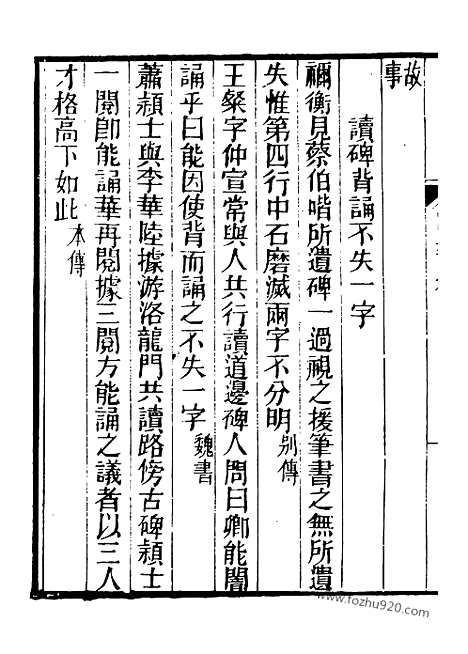 故
事
讀碑背誦不失一字
禰衡見蔡伯喈所遺碑一過視之援筆書之無所遺
失惟第四行中石磨滅兩字不分明別傳
王粲字仲宣常與人共行讀道邊碑人問曰卿能闇
誦乎曰能因使背而誦之不失一字魏書
蕭潁士與李華陸據游洛龍門共讀路傍古碑潁士
一閱卽能誦華再閱據三閱方能誦之議者以三人
才格高下如此本傳
www.fozhu920.com